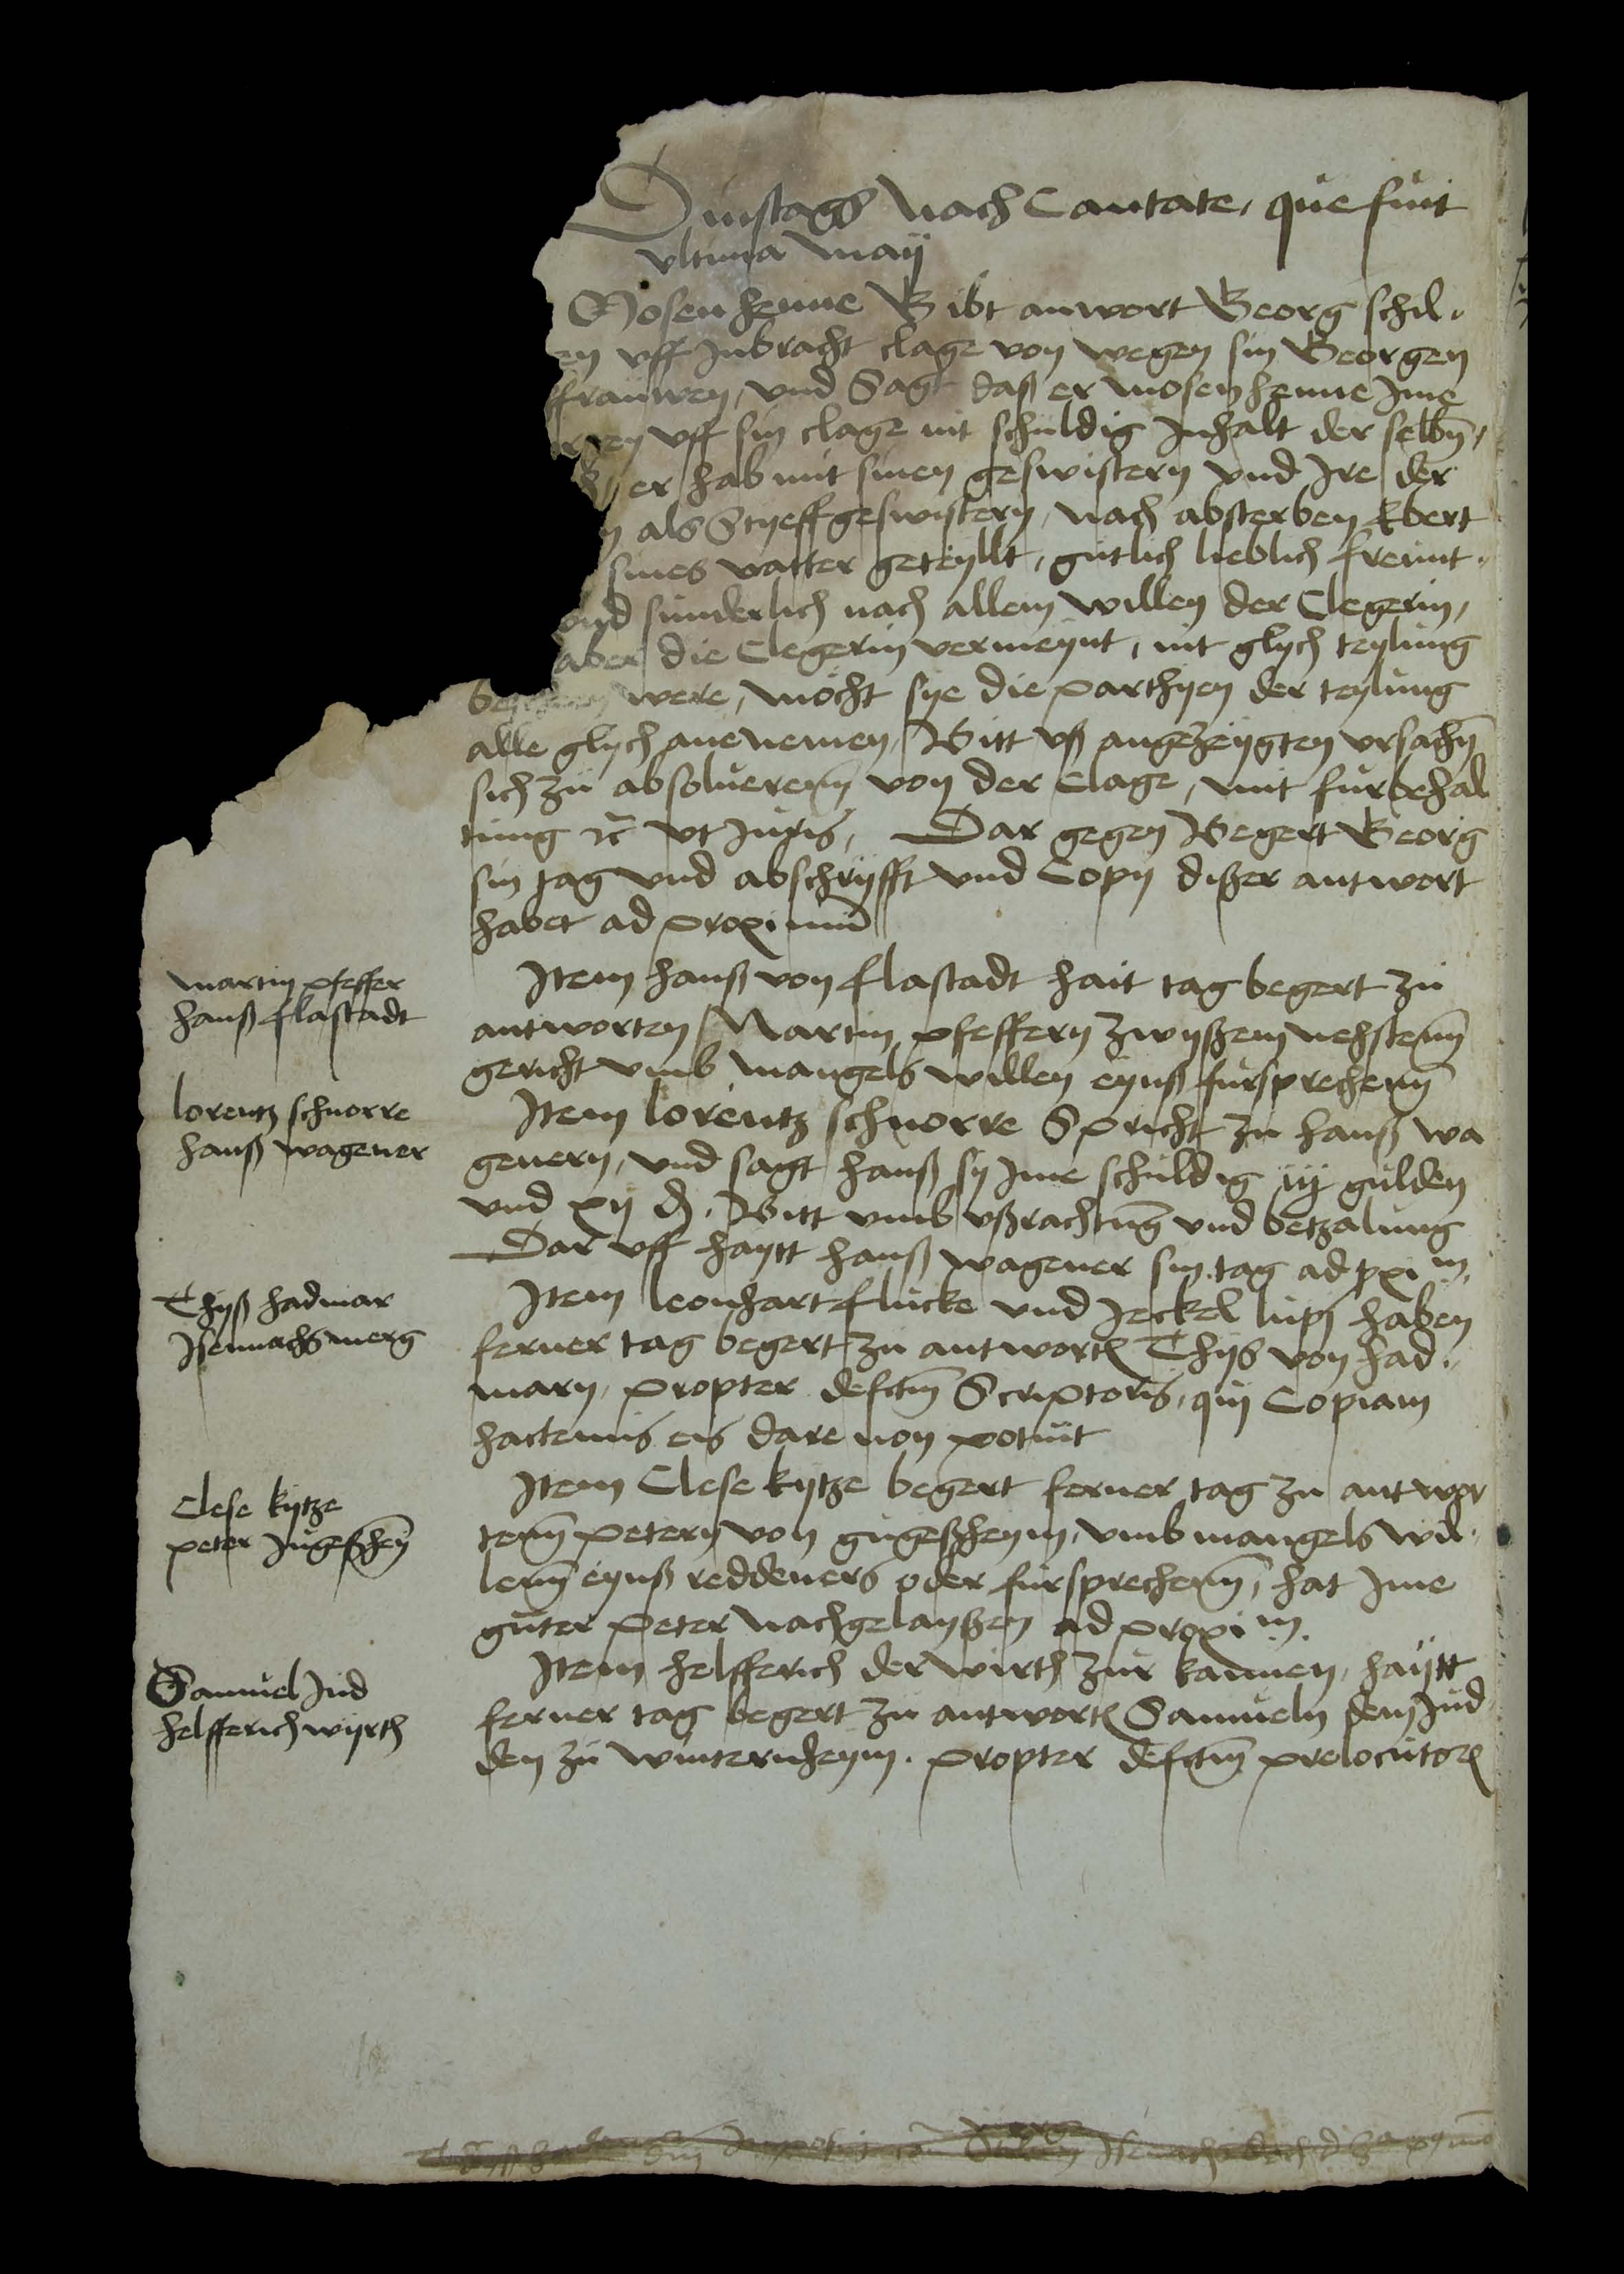 Dinstags Nach Cantate, que fuit
vltima Maij
Mosenhenne Gibt anwort Georg schil
en vff Inbracht clage von wegen sin Georgen
ffrauwen, vnd Sagt daß er mosenhenne Ime
vff sin clage nit schuldig Inhalt der selbn̄,
er hab mit sinen geswistern vnd Ire der
n als Styeffgeswistern, nach absterben Ebert
sines vatter geteyllt, gutlich lieblich freunt
vnd sunderlich nach allem willen der Clegerin,
aber die Clegerin vermeynt, nit glych teylung
were, mocht sye die parthyen der teylung
alle glych ane nemen, Bitt vß angezeygten vrsachn̄
sich zu absoluerenn̄ von der clage, mit furbehal
tung ꝛc̄ vt Juris, Dar gegen Begert Georg
sin tag vnd abschryfft vnd Copy dißer antwort
habet ad proximum̄
martin pfeffer
hanß flastadt
Item hanß von flastadt hait tag begert zu
antworten Martin pfeffern zwyßem nehstenn̄
gericht vmb mangels willen eynß fursprechenn̄
lorentz schnorre
hanß wagener
Item lorentz schnorre Spricht zu hanß wa
genern, vnd sagt hanß sy Ime schuldig iij gulden
vnd xij ₰. Bitt vmb vßrachtūg vnd betzalung
Dar vff haytt hanß wagener sin tag ad pxi m.
Thyß hadmar
Isennachs merg
Item leonhart flucke vnd Jeckel lups haben
ferner tag begert zu antwortē Thys von had
marn, propter defctm̄ Scriptoris, qui Copiam
hactenus eis dare non potuit
Clese kytze
peter Jugeßheȳ
Item Clese kytze begert ferner tag zu antwor
tenn̄ petern von gugeßheym, vmb mangels wil
lenn̄ eynß reddeners oder fursprechenn̄, hat Ime
guter peter Nachgelayßen ad proxi m.
Samuel Jud
helfferich wyrth
Item helfferich der wirth zur kannen, haytt
ferner tag begert zu antwortē Samueln dem Jud
den zu winternheym. propter defctm̄ prelocutorē